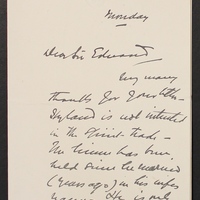 Monday
Dear Sir Edward
Very many
thanks for your letter.
is not interested
in the Spirit-trade -
The licence has been
held since he married
(years ago) in his wife's
name. He is only